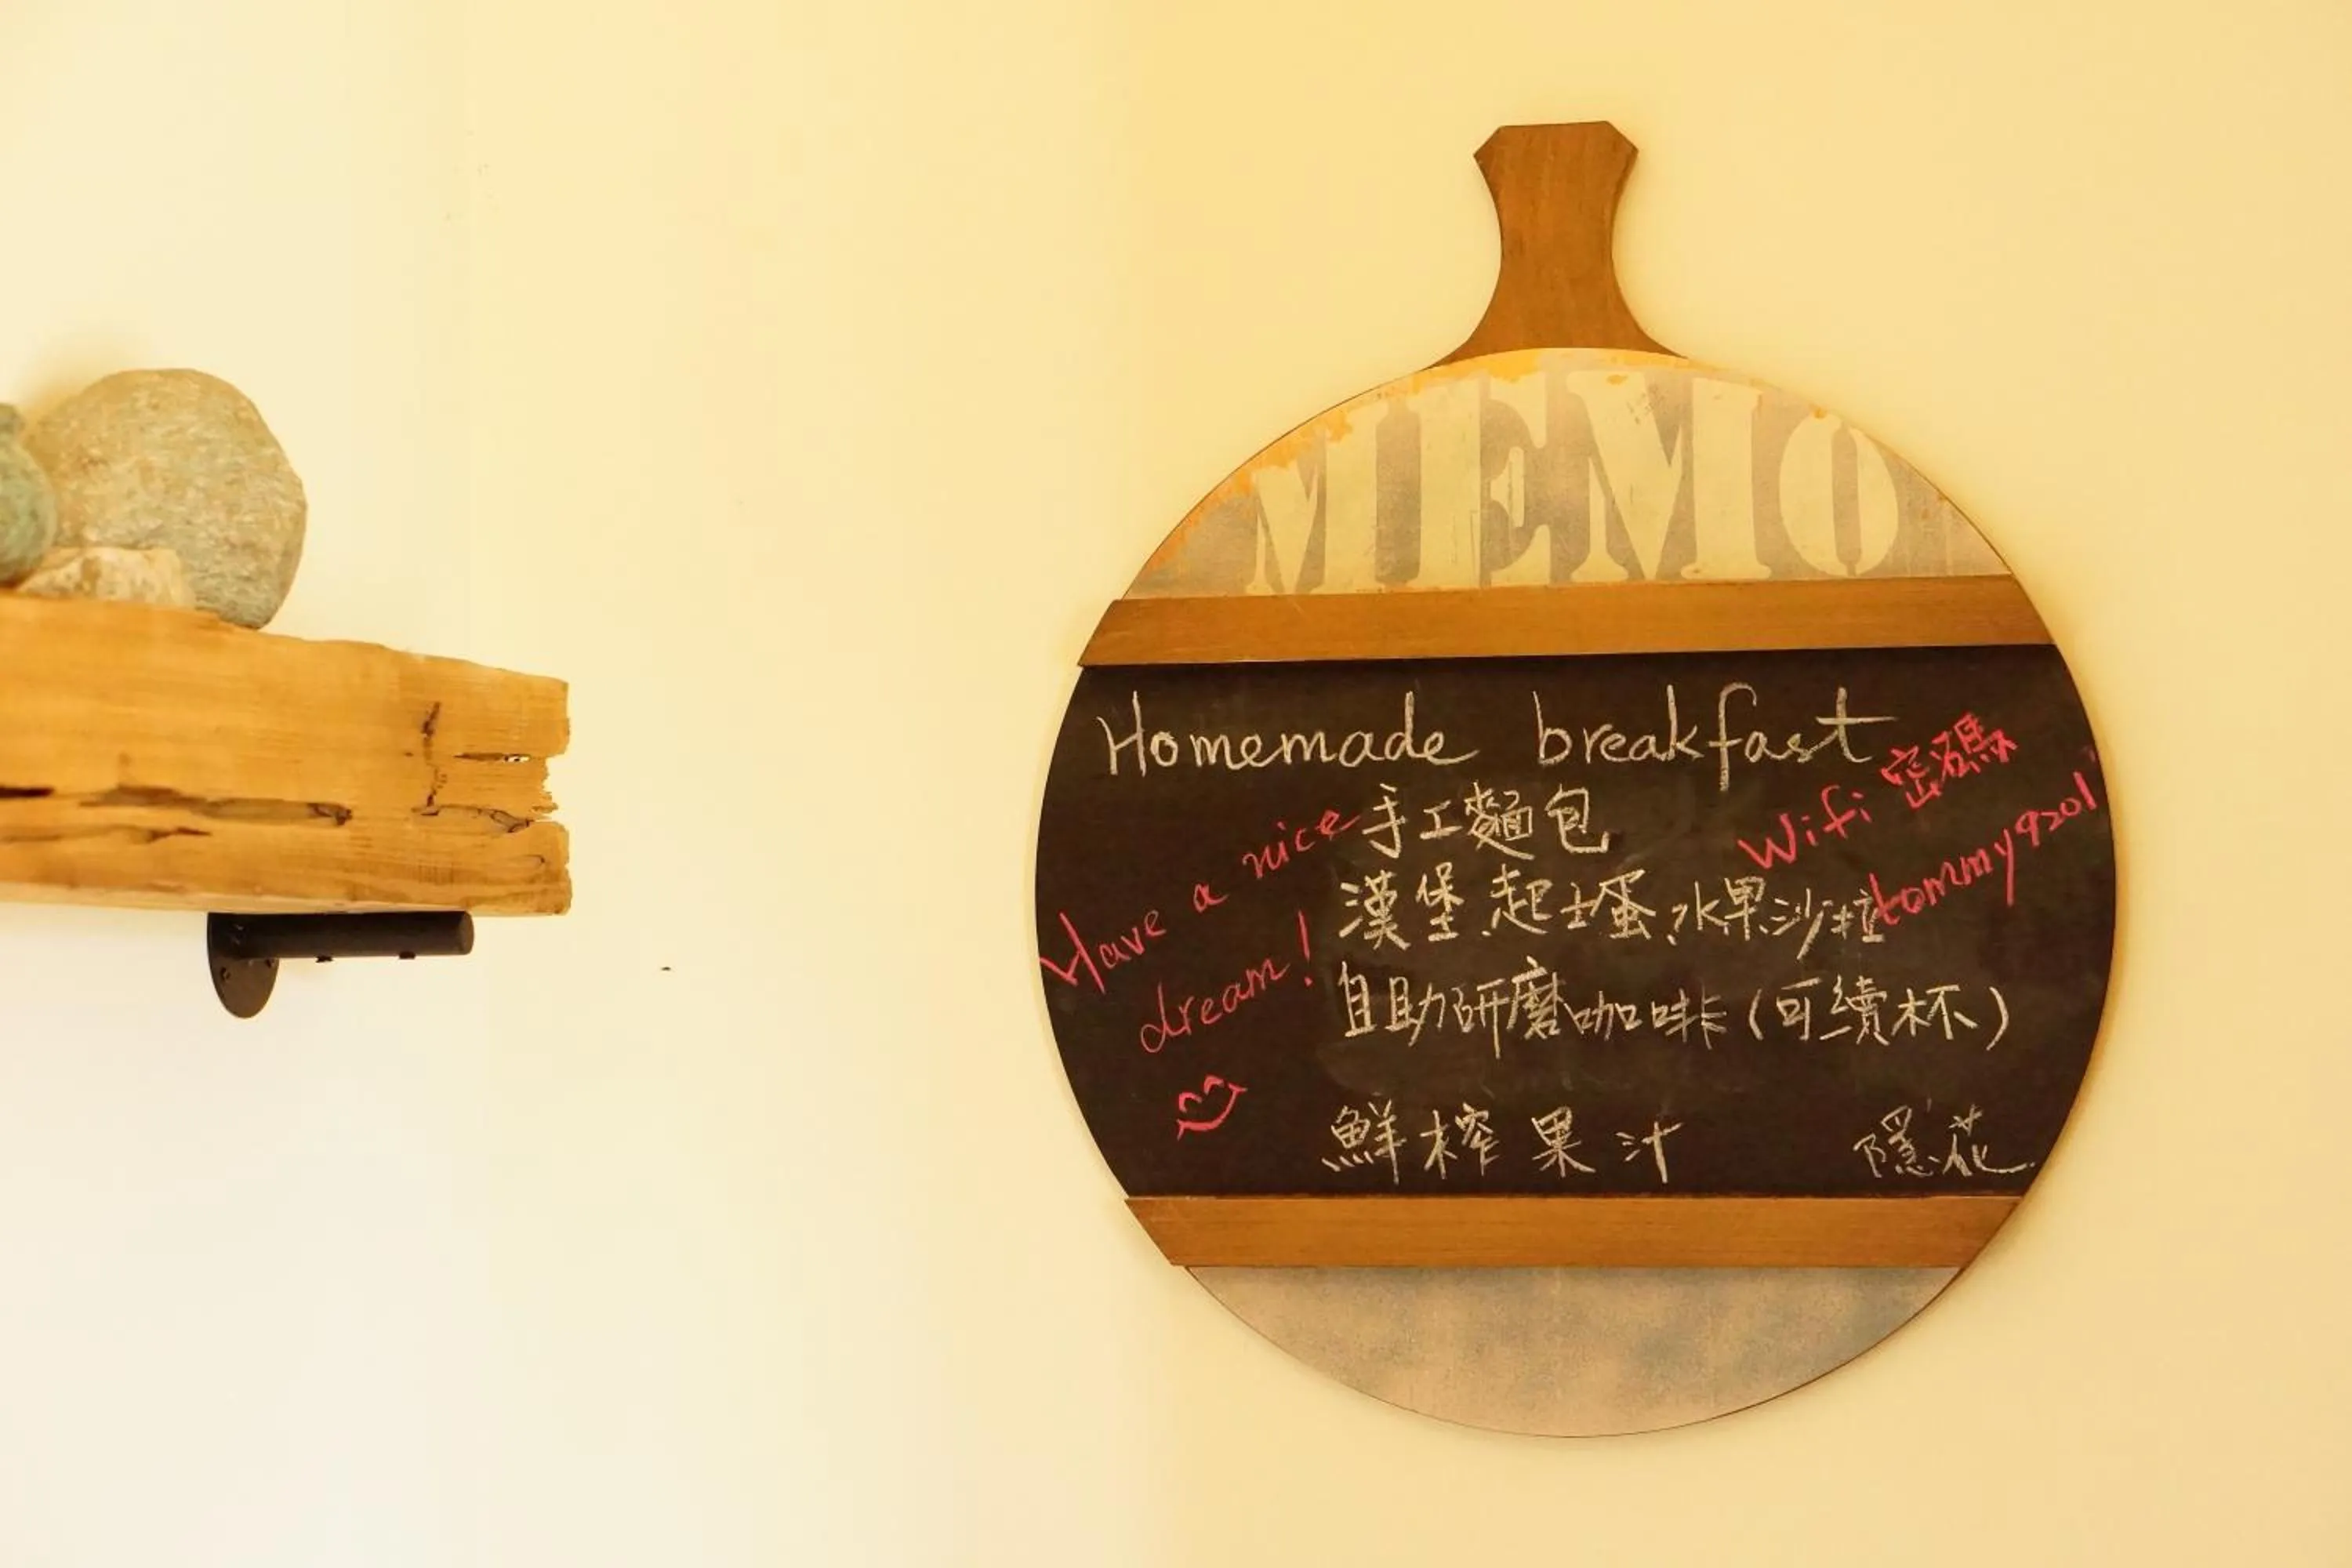 MEMO
Homemade breakfast
手工麵包
漢堡、起士蛋、水果沙拉
自助研磨咖啡(可續杯)
鮮榨果汁
隱花
Have a nice
dream!
Wifi 密碼
tommy9201